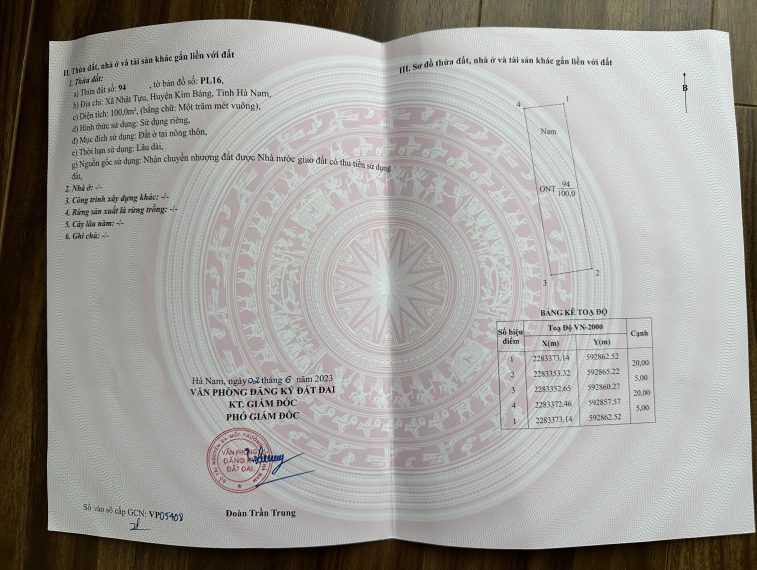 II. Thửa đất, nhà ở và tài sản khác gắn liền với đất
1. Thửa đất:
a) Thửa đất số: 94 , tờ bản đồ số: PL16,
b) Địa chỉ: Xã Nhật Tựu, Huyện Kim Bảng, Tỉnh Hà Nam,
c) Diện tích: 100,0m², (bằng chữ: Một trăm mét vuông),
d) Hình thức sử dụng: Sử dụng riêng,
đ) Mục đích sử dụng: Đất ở tại nông thôn,
e) Thời hạn sử dụng: Lâu dài,
g) Nguồn gốc sử dụng: Nhận chuyển nhượng đất được Nhà nước giao đất có thu tiền sử dụng
đất,
2. Nhà ở: -/-
3. Công trình xây dựng khác: -/-
4. Rừng sản xuất là rừng trồng: -/-
5. Cây lâu năm: -/-
6. Ghi chú: -/-
Hà Nam, ngày 02 tháng 6 năm 2023
VĂN PHÒNG ĐĂNG KÝ ĐẤT ĐAI
KT. GIÁM ĐỐC
PHÓ GIÁM ĐỐC
VĂN PHÒNG
ĐĂNG KÝ
ĐẤT ĐAI
Đoàn Trần Trung
Số vào sổ cấp GCN: VP05408
III. Sơ đồ thửa đất, nhà ở và tài sản khác gắn liền với đất
B
4 1
Nam
ONT 94
100,0
3 2
BẢNG KÊ TOẠ ĐỘ
Số hiệu điểm Toạ Độ VN-2000 Cạnh
X(m) Y(m)
1 2283373.14 592862.52
20,00
2 2283353.32 592865.22
5,00
3 2283352.65 592860.27
20,00
4 2283372.46 592857.57
5,00
1 2283373.14 592862.52